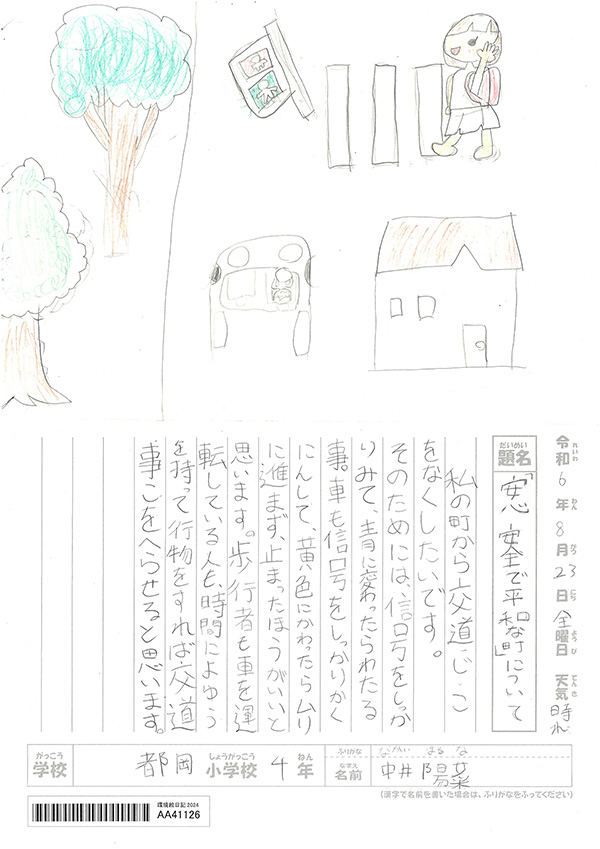 令和6年8月23日金曜日 天気 晴れ
れいわ ねん がつ にち ようび てんき
だいめい
題名
「安心安全で平和な町について」
私の町から交通じこ
をなくしたいです。
そのためには、信号をしっか
りみて、青に変わったらわたる
事。車も信号をしっかりかく
にんして、黄色にかわったらムリ
に進まず、止まったほうがいいと
思います。歩行者も車を運
転している人も、時間によゆう
を持って行動をすれば交通
事こをへらせると思います。
がっこう しょうがっこう ねん
学校 都岡 小学校 4年
ふりがな なかい はるな
なまえ
名前 中井 陽菜
(漢字で名前を書いた場合は、ふりがなをふってください)
環境絵日記2024
AA41126